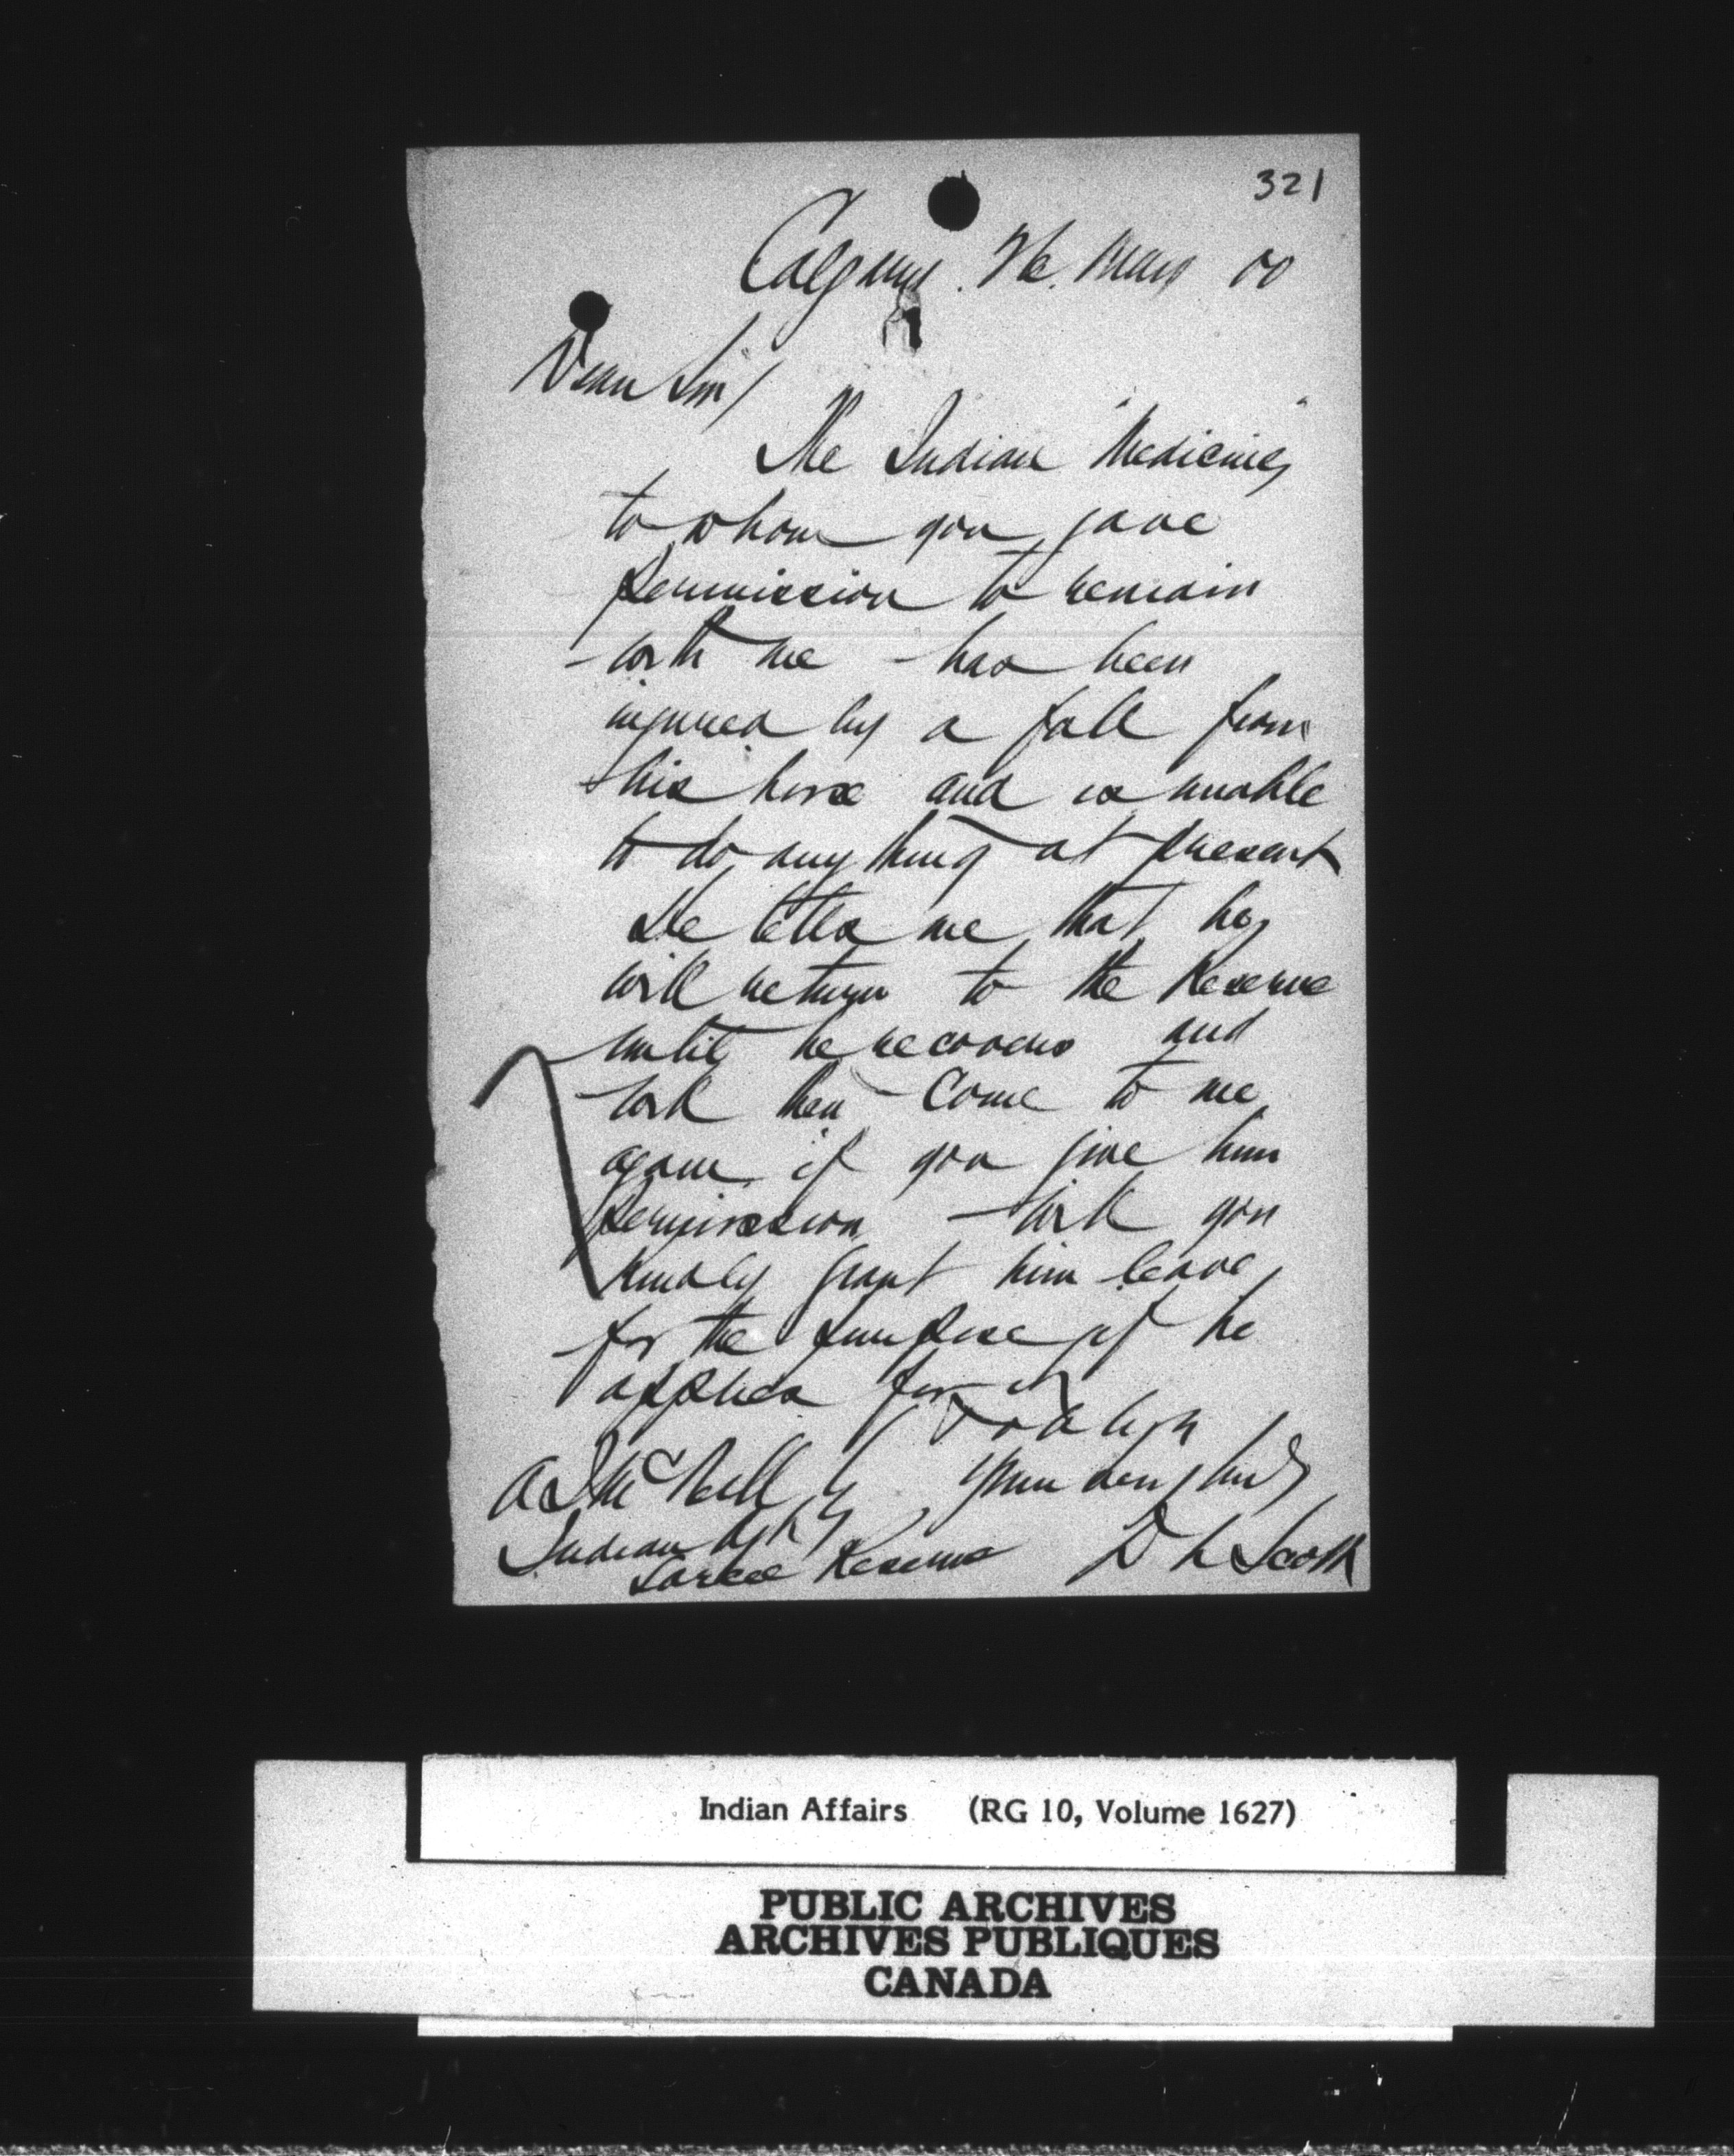 321
Calgary. 26. Mar 00
Dear Sir/
The Indian "Medicine"
to whom you gave
permission to remain
with me - has been
injured by a fall from
his horse and is unable
to do anything at present
He tells me that he
will return to the Reserve
until he recovers and
will then come to me
again if you give him
permission - will you
kindly grant him leave
for the purpose if he
applies for it
Yours truly
D L Scott
A J McNeill
Indian Agt
Sarcee Reserve
Indian Affairs (RG 10, Volume 1627)
PUBLIC ARCHIVES
ARCHIVES PUBLIQUES
CANADA